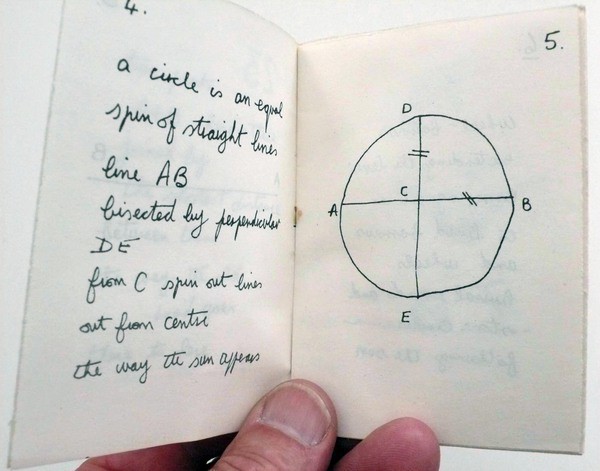 4.
a circle is an equal
spin of straight lines
line AB
bisected by perpendicular
DE
from C spin out lines
out from centre
the way the sun appears
5.
D
C
A
B
E